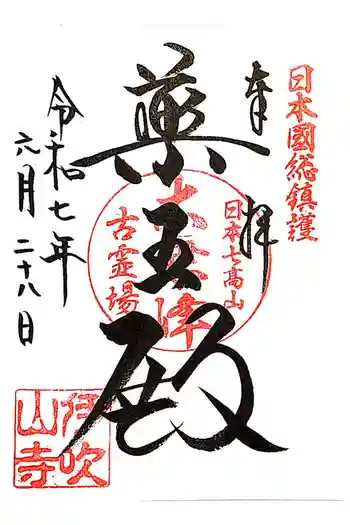 日本國総鎮護
奉拝
日本七高山
峰
古霊場
薬王殿
令和七年
六月二十八日
伊吹山寺